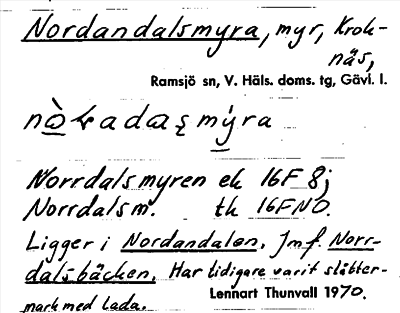 Nordandalsmyra, myr, Krok-
näs,
Ramsjö sn, V. Häls. doms. tg, Gävl. l.
Norrdalsmyren ek 16F 8j
Norrdalsm. tk 16FNO.
Ligger i Nordandalen. Jmf. Norr-
dalsbäcken. Har tidigare varit slåtter-
mark med lada. Lennart Thunvall 1970.